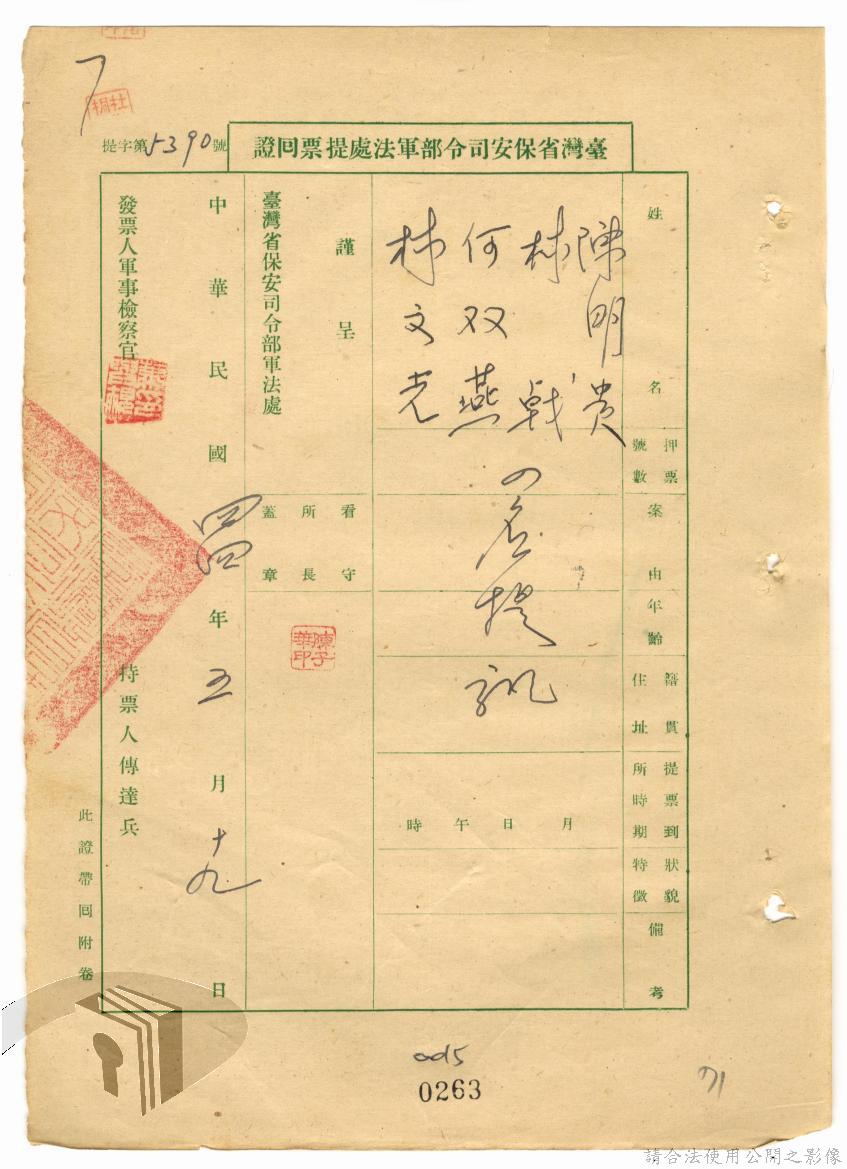 臺灣省保安司令部軍法處提票回證
提字第5390號
姓名
押票號數
案由
年齡
籍貫住址
提票到所時期
狀貌特徵
備考
陳明貴
林戟
何双燕
林文光
四名提訊
月日午時
謹呈
臺灣省保安司令部軍法處
看守所長蓋章
陳子華印
中華民國四四年五月十九日
發票人軍事檢察官
持票人傳達兵
此證帶回附卷
0263
71
請合法使用公開之影像